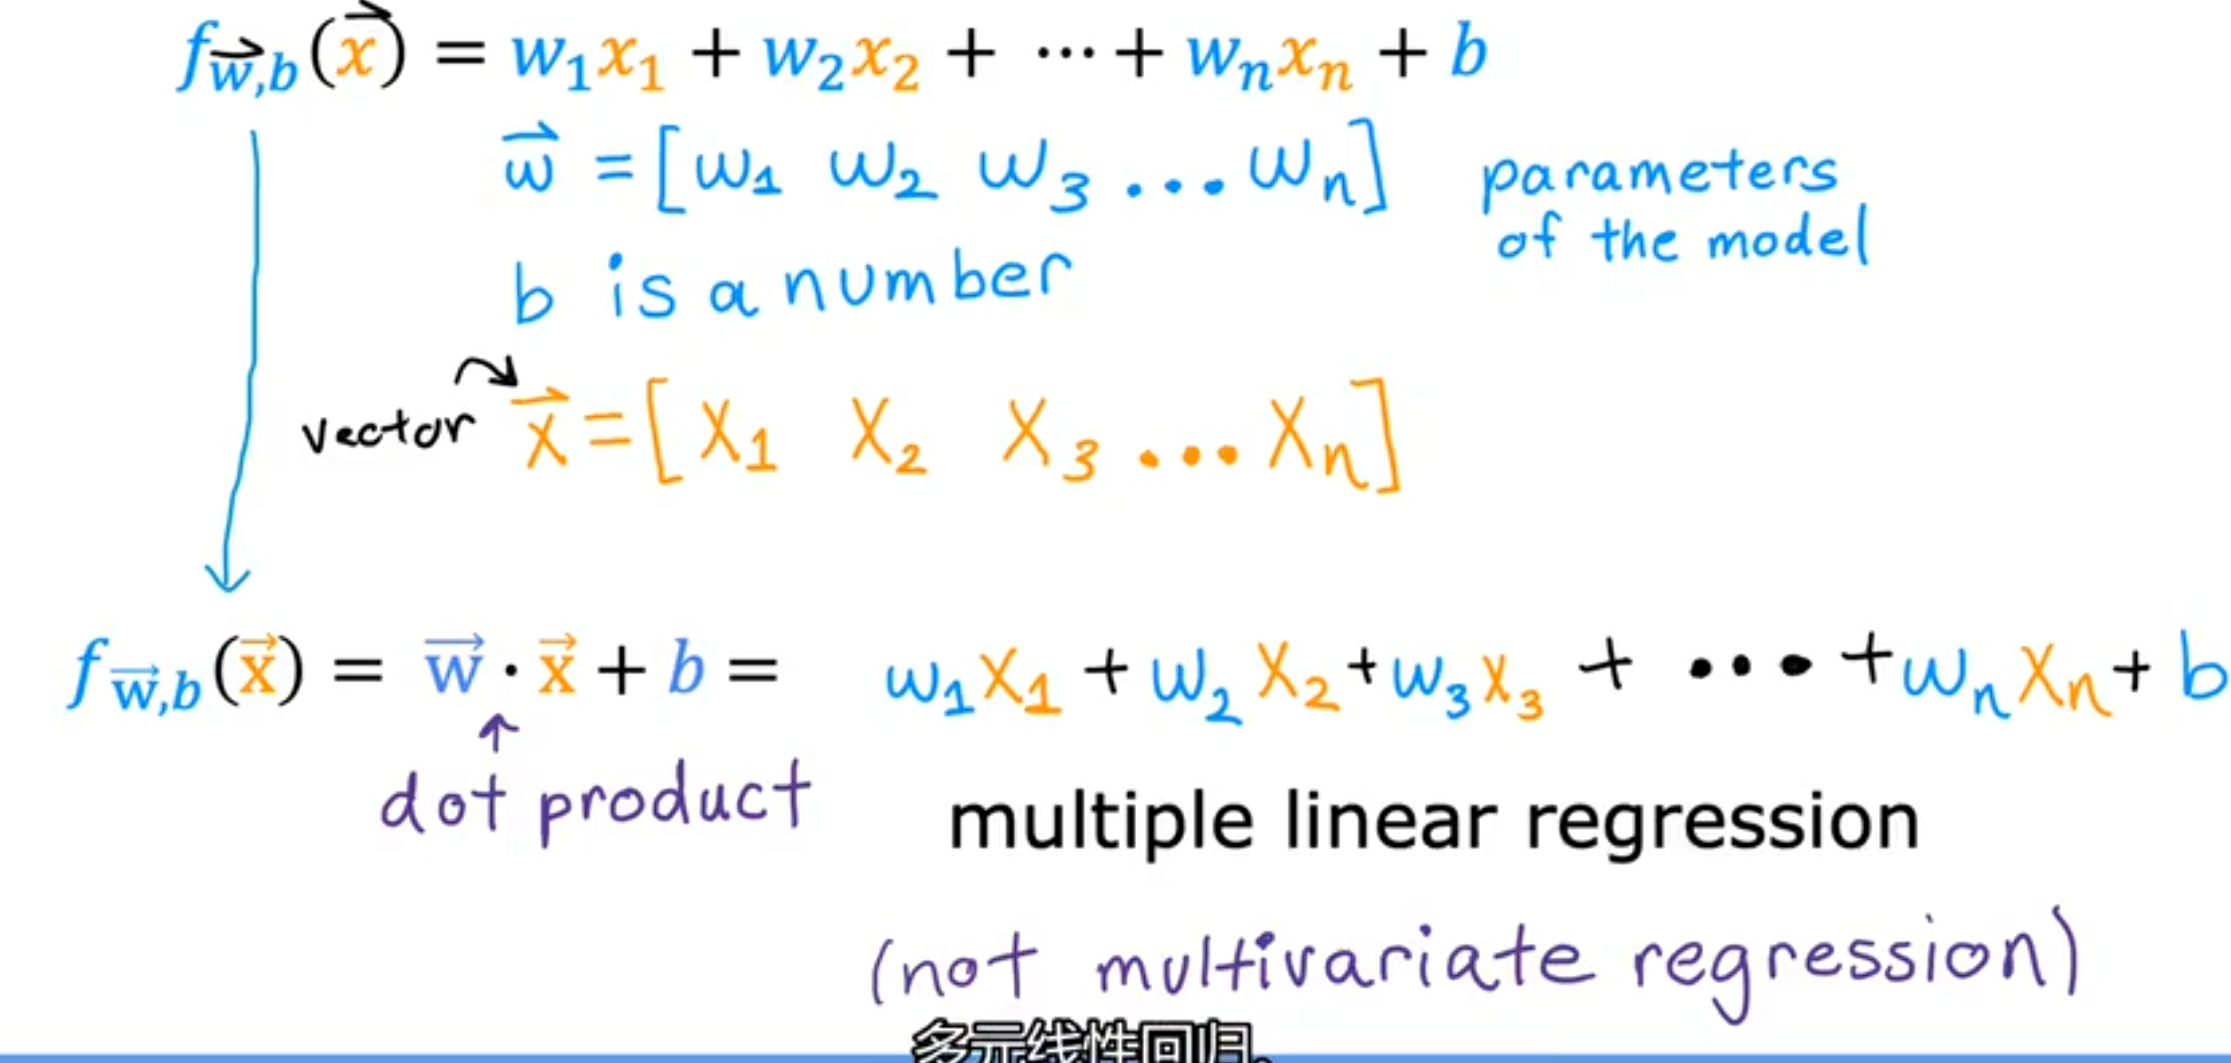 f_{\vec{w},b}(\vec{x}) = w₁x₁ + w₂x₂ + ⋯ + wₙxₙ + b
\vec{w} = [w₁ w₂ w₃ ... wₙ] parameters
of the model
b is a number
vector \vec{x} = [x₁ x₂ x₃ ... xₙ]
f_{\vec{w},b}(\vec{x}) = \vec{w} · \vec{x} + b = w₁x₁ + w₂x₂ + w₃x₃ + ... + wₙxₙ + b
dot product
multiple linear regression
(not multivariate regression)
多元线性回归。